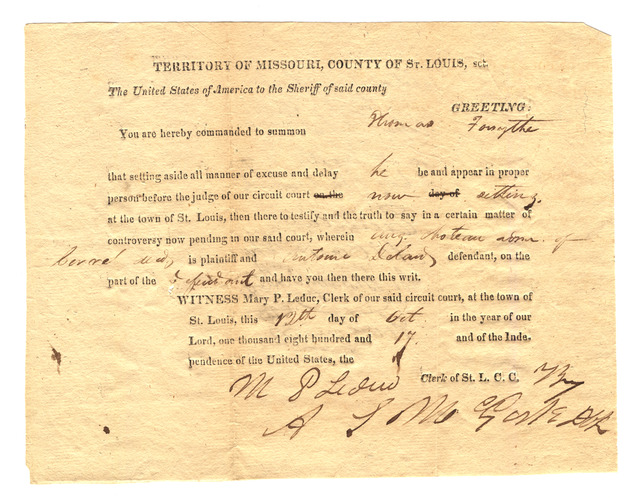 TERRITORY OF MISSOURI, COUNTY OF St. LOUIS, sct.
The United States of America to the Sheriff of said county
GREETING:
You are hereby commanded to summon Thomas Forsythe
that setting aside all manner of excuse and delay he be and appear in proper
person before the judge of our circuit court on the now day of sitting
at the town of St. Louis, then there to testify and the truth to say in a certain matter of
controversy now pending in our said court, wherein Aug. Choteau adm. of
Cerré is plaintiff and Antoine defendant, on the
part of the defendant and have you then there this writ.
WITNESS Mary P. Leduc, Clerk of our said circuit court, at the town of
St. Louis, this 13th day of Oct. in the year of our
Lord, one thousand eight hundred and 17 and of the Inde-
pendence of the United States, the
M P Leduc Clerk of St. L. C. C. By
A S M